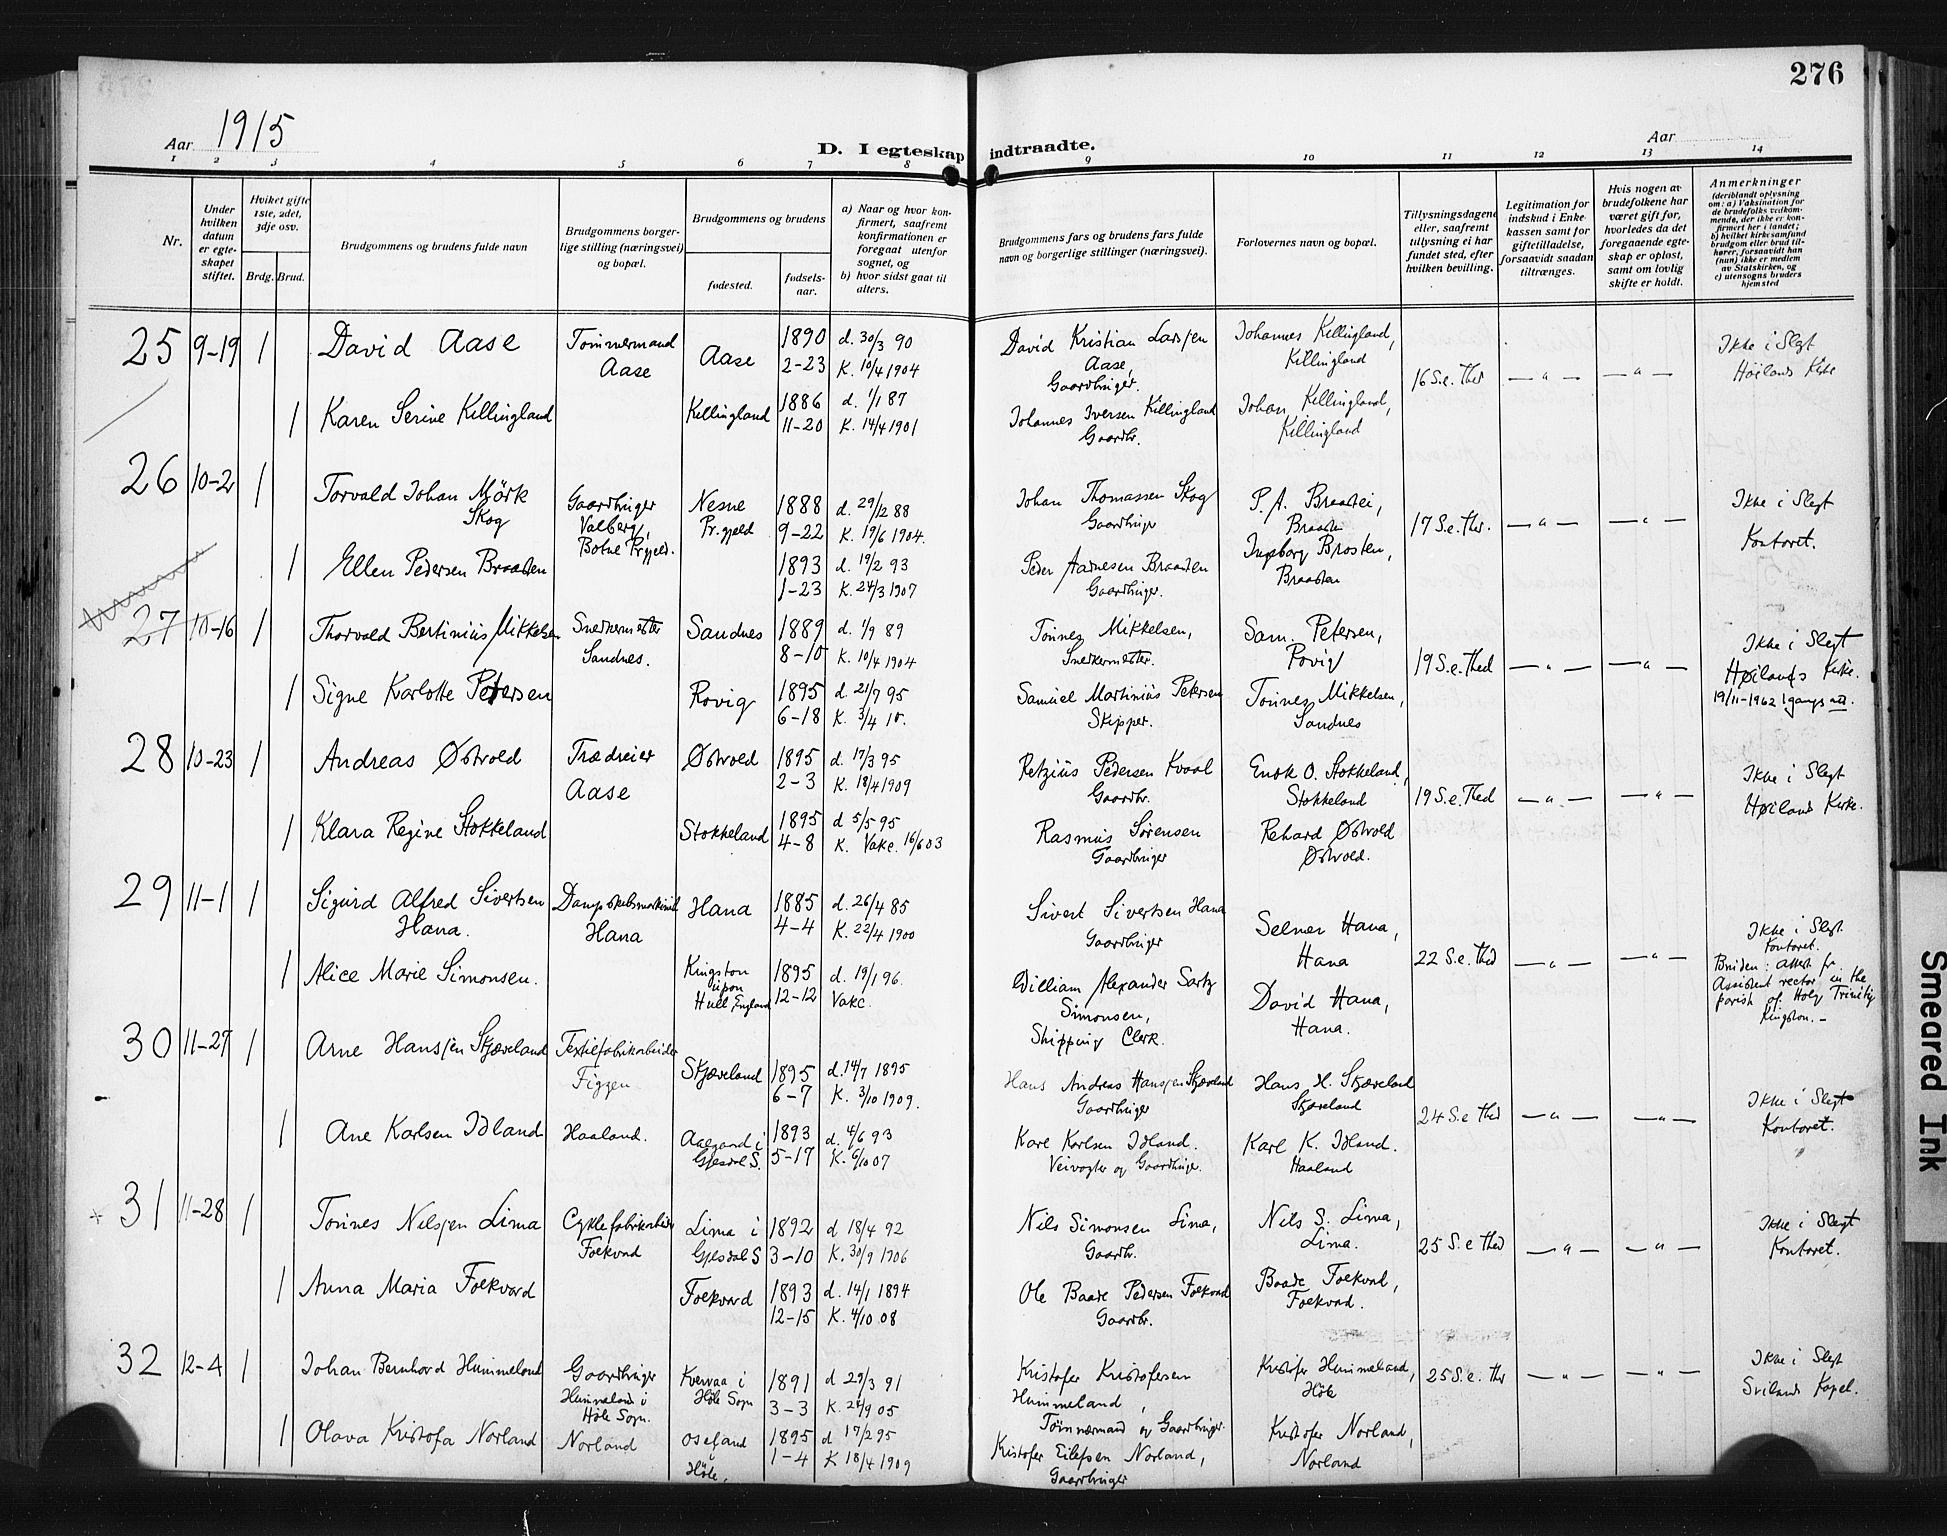 276
Aar 1915
Aar
D. I egteskap indtraadte.
1 2 3 4 5 6 7 8 9 10 11 12 13 14
Nr.
Under hvilken datum er egteskapet stiftet.
Hvilket gifte 1ste, 2det, 3dje osv.
Brdg. Brud.
Brudgommens og brudens fulde navn
Brudgommens borgerlige stilling (næringsvei) og bopæl.
Brudgommens og brudens
fødested.
fødselsaar.
a) Naar og hvor konfirmert, saafremt konfirmationen er foregaat utenfor sognet, og
b) hvor sidst gaat til alters.
Brudgommens fars og brudens fars fulde navn og borgerlige stillinger (næringsvei).
Forlovernes navn og bopæl.
Tillysningsdagene eller, saafremt tillysning ei har fundet sted, efter hvilken bevilling.
Legitimation for indskud i Enkekassen samt for giftetilladelse, forsaavidt saadan tiltrænges.
Hvis nogen av brudefolkene har været gift før, hvorledes da det foregaaende egteskap er opløst, samt om lovlig skifte er holdt.
Anmerkninger
(deriblandt oplysning om: a) Vaksination for de brudefolks vedkommende, der ikke er konfirmert her i landet; b) hvilket kirkesamfund brudgom eller brud tilhører, forsaavidt han (hun) ikke er medlem av Statskirken, og c) utensogns bruders hjemsted
25 9-19 1 David Aase Tømmermand Aase Aase 1890 2-23 d. 30/3 90 K. 10/4 1904
David Kristian Larsen Aase, Gaardbruger. Johannes Killingland, Killingland 16 S.e. Thr — " — — " — Ikke i Slegt Høilands Kirke
1 Karen Serine Killingland Killingland 1886 11-20 d. 1/1 87 K. 14/4 1901
Johannes Iversen Killingland Gaardbr. Johan Killingland, Killingland
26 10-2 1 Torvald Johan Mörk Skog Gaardbruger Valberg, Botne Prgjeld. Nesne Pr.gjeld 1888 9-22 d. 29/12 88 K. 19/6 1904.
Johan Thomassen Skog Gaardbruger P. A. Braastei, Braasten 17 S.e. Thr. — " — — " — Ikke i Slegt Kontoret.
1 Ellen Pedersen Braasten 1893 1-23 d. 19/2 93 K. 24/3 1907
Peder Aadnesen Braasten Gaardbruger. Ingeborg Brosten, Braasten
27 10-16 1 Thorvald Bertinius Mikkelsen Snedkermester Sandnes. Sandnes 1889 8-10 d. 1/9 89 K. 10/4 1904
Tönnes Mikkelsen, Snedkermester. Sam. Petersen, Rovig 19 S.e. Thed — " — — " — Ikke i Slegt Høilands Kirke. 19/11-1962 1gangs att.
1 Signe Karlotte Petersen Rovig 1895 6-18 d. 21/7 95 K. 3/4 10.
Samuel Martinius Petersen Skipper. Tönnes Mikkelsen, Sandnes
28 10-23 1 Andreas Østvold Trædreier Aase Østvold 1895 2-3 d. 17/3 95 K. 18/4 1909
Retzius Pedersen Kvaal Gaardbr. Enok O. Stokkeland, Stokkeland 19 S.e. Thed — " — — " — Ikke i Slegt Høiland Kirke.
1 Klara Regine Stokkeland Stokkeland 1895 4-8 d 5/5 95 K. Vakc. 16/6 03
Rasmus Sörensen Gaardbruger Rehard Østvold Østvold.
29 11-1 1 Sigurd Alfred Sivertsen Hana. Hana Hana 1885 4-4 d. 26/4 85 K. 22/4 1900
Sivert Sivertsen Hana Gaardbruger Selmer Hana, Hana 22 S.e. Thed — " — — " — Ikke i Slegt. Kontoret. Bruden: attest fr. Assistent rector in the parish of Holy Trinity Kingston. —
1 Alice Marie Simonsen. Kingston upon Hull England 1895 12-12 d. 19/1 96. Vakc.
William Alexander Sartz Simonsen, Shipping Clerk. David Hana, Hana.
30 11-27 1 Arne Hansen Skjæveland Textilfabrikarbeider Figgen Skjæveland 1895 6-7 d. 14/7 1895 K. 3/10 1909.
Hans Andreas Hansen Skjæveland Gaardbruger Hans H. Skjæveland Skjæveland 24 S.e Thed — " — — " — Ikke i Slegt Kontoret.
1 Ane Karlsen Idland Haaland. Aalgaard i Gjesdal S. 1893 5-17 d. 4/6 93 K. 6/10 07
Karl Karlsen Idland. Veivogter og Gaardbruger. Karl K. Idland. Haaland
31 11-28 1 Tönnes Nilsen Lima Cyklefabrikarbeider Foekvand Lima i Gjesdal S 1892 3-10 d 18/4 92 K. 30/9 1906
Nils Simonsen Lima, Gaardb. Nils S. Lima, Lima. 25 S.e Thed — " — — " — Ikke i Slegt Kontoret.
1 Anna Maria Foekvard Foekvard 1893 12-15 d. 14/1 1894 K. 4/10 08
Ole Baade Pedersen Foekvard Gaardbr. Baade Foekvard, Foekvard.
32 12-4 1 Johan Bernhard Hummeland Gaardbruger Hummeland i Höle Sogn. Kvernaa i Höle Sogn 1891 3-3 d 29/3 91 K. 24/9 05
Kristofer Kristofersen Hummeland, Tømmermand og Gaardbruger. Kristofer Hummeland, Höle 25 S.e. Thr — " — — " — Ikke i Slegt Svilands Kapel.
1 Olava Kristofa Norland Norland Osefand i Höle, 1895 1-4 d 17/2 95 K 18/4 1909
Kristofer Eilefsen Norland, Gaardbruger Kristofer Norland, Norland
Smeared Ink